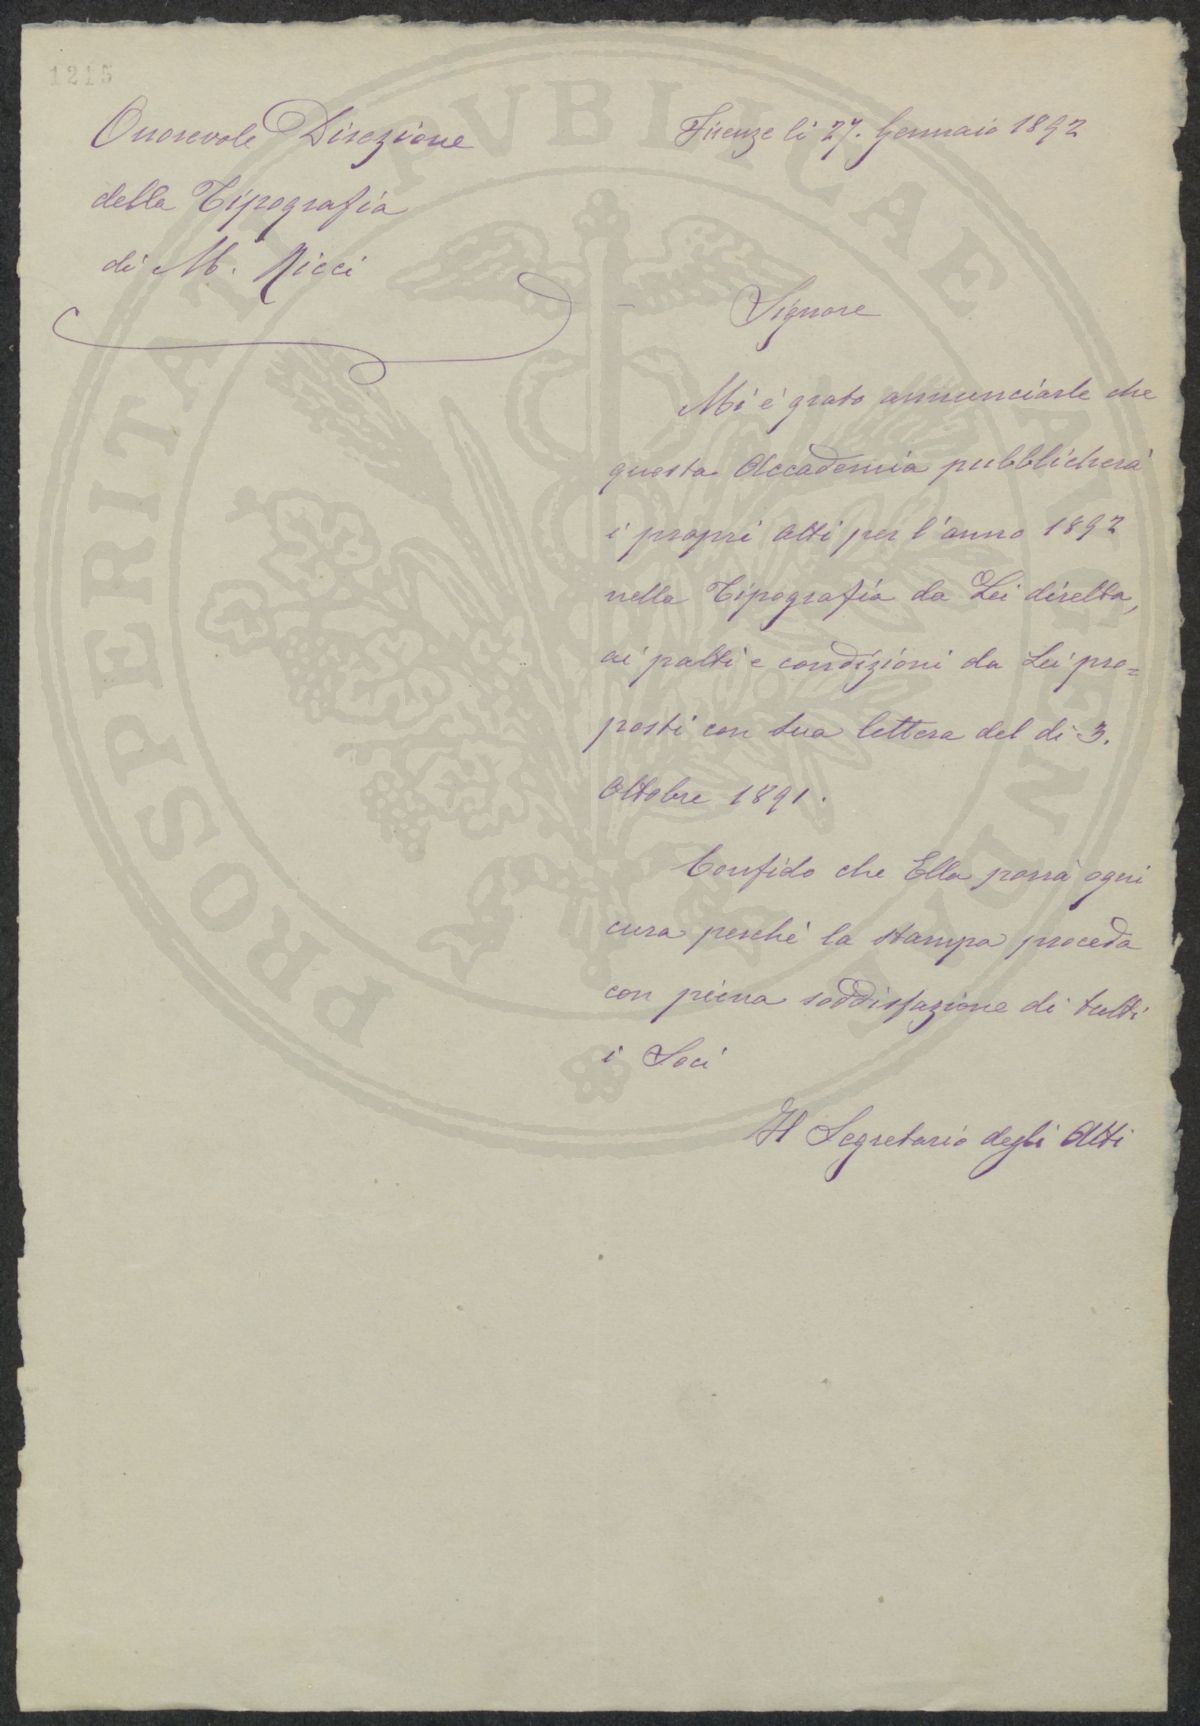 1215
Onorevole Direzione
della Tipografia
di M. Ricci
Firenze li 27. Gennaio 1892
Signore
Mi è grato annunciarle che
questa Accademia pubblicherà
i propri Atti per l'anno 1892
nella Tipografia da Lei diretta,
ai patti e condizioni da Lei pro=
posti con sua lettera del dì 3.
Ottobre 1891.
Confido che Ella porrà ogni
cura perchè la stampa proceda
con piena soddisfazione di tutti
i Soci
Il Segretario degli Atti
PROSPERITATI PVBLICAE AVGENDAE